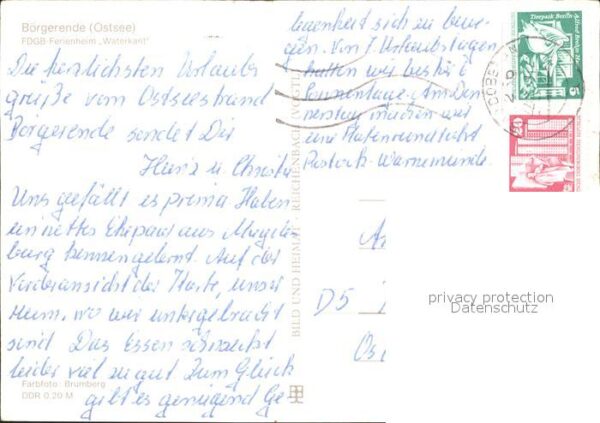 Börgerende (Ostsee)
FDGB-Ferienheim „Waterkant"
Die herzlichsten Urlaubs
grüße vom Ostseestrand
Börgerende sendet Dir
Heinz u. Christa
Uns gefällt es prima Haben
ein nettes Ehepaar aus Magde
burg kennengelernt. Auf der
Vorderansicht der Karte, unser
Heim, wo wir untergebracht
sind Das Essen schmeckt
leider viel zu gut Zum Glück
gibt es genügend Ge-
legenheit sich zu bewe-
gen. Von 7 Urlaubstagen
hatten wir bisher 6
Sonnentage. Am Don
nerstag machen wir
eine Hafenrundfahrt
Rostock-Warnemünde.
Farbfoto: Brumberg
DDR 0,20 M
BILD UND HEIMAT REICHENBACH
Tierpark Berlin
5
20
D5
privacy protection
Datenschutz